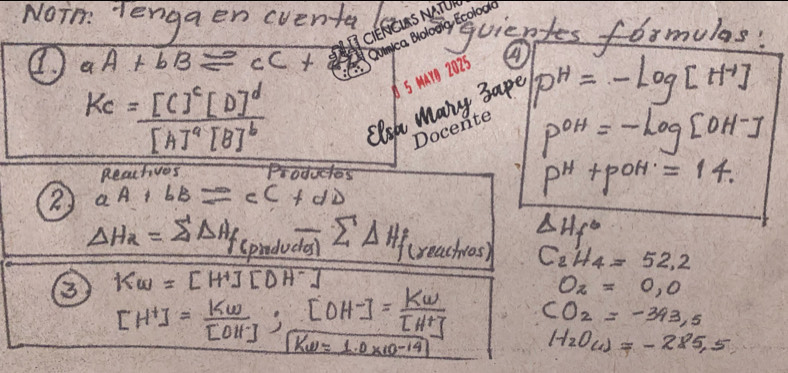 NOTA: Tenga en cuenta las siguientes fórmulas:
CIENCIAS NATURALES
Química, Biología, Ecología
05 MAYO 2025
Elsa Mary Zape
Docente
1. aA + bB ⇌ cC + dD
Kc = [C]^c [D]^d / [A]^a [B]^b
Reactivos Productos
2 aA + bB ⇌ cC + dD
ΔHR = ΣΔHf(productos) − ΣΔHf(reactivos)
3 Kw = [H+][OH-]
[H+] = Kw/[OH-] ; [OH-] = Kw/[H+]
Kw = 1.0x10-14
4 pH = -Log[H+]
pOH = -Log[OH-]
pH + pOH = 14.
ΔHf°
C2H4 = 52,2
O2 = 0,0
CO2 = -393,5
H2O(l) = -285,5